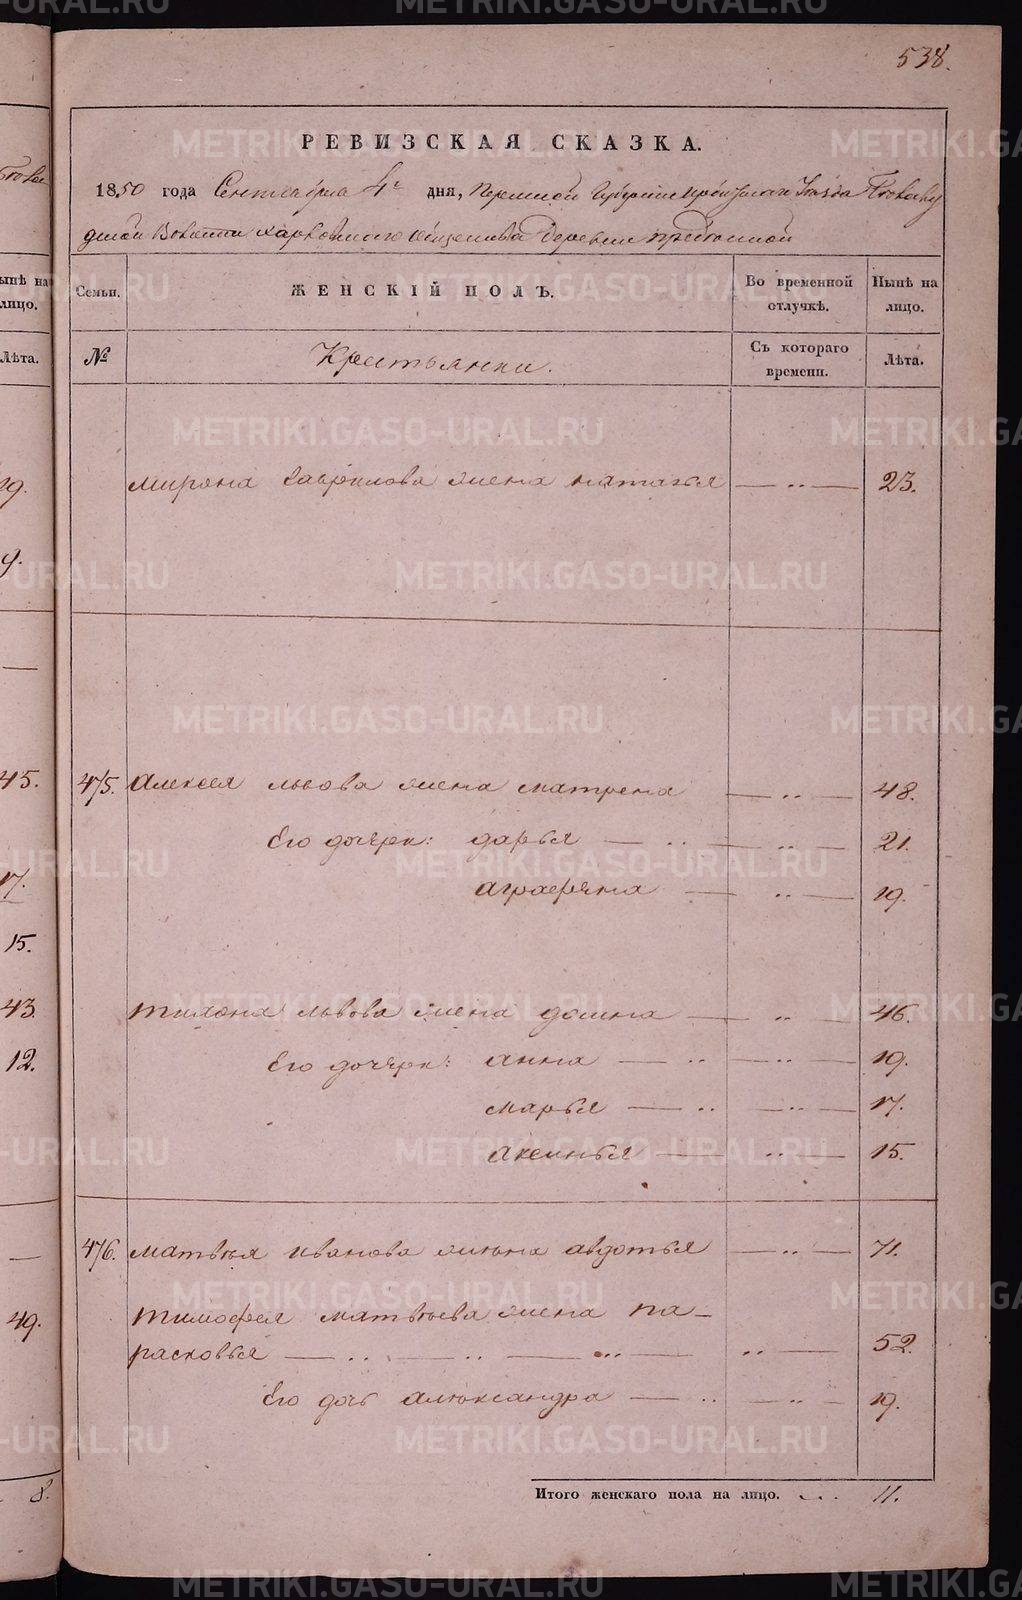 538.
РЕВИЗСКАЯ СКАЗКА.
1850 года Сентября 4го дня, Пермской Губернии Ирбитскаго Уезда
Волости Харловскаго общества Деревни
Семьи. ЖЕНСКІЙ ПОЛЪ. Во временной отлучкѣ. Нынѣ на лицо.
№ Крестьянки. Съ котораго времени. Лѣта.
Мирона Гаврилова жена Наталья — „ — 23.
475. Алексея Львова жена Матрена — „ — 48.
Его дочери: Дарья — „ — „ — 21.
Аграфѣна — „ — 19.
Тихона Львова жена Домна — „ — 46.
Его дочери: Анна — „ — „ — 19.
Марья — „ — „ — 17.
Аксинья — „ — 15.
476. Матвѣя Иванова жѣна Авдотья — „ — 71.
Тимофея Матвѣева жена Па-
расковья — „ — „ — „ — „ — 52.
Его дочь Алѣксандра — „ — „ — 19.
Итого женскаго пола на лицо. 11.
ынѣ на
лицо.
Лѣта.
9.
45.
17.
15.
43.
12.
49.
8.
METRIKI.GASO-URAL.RU